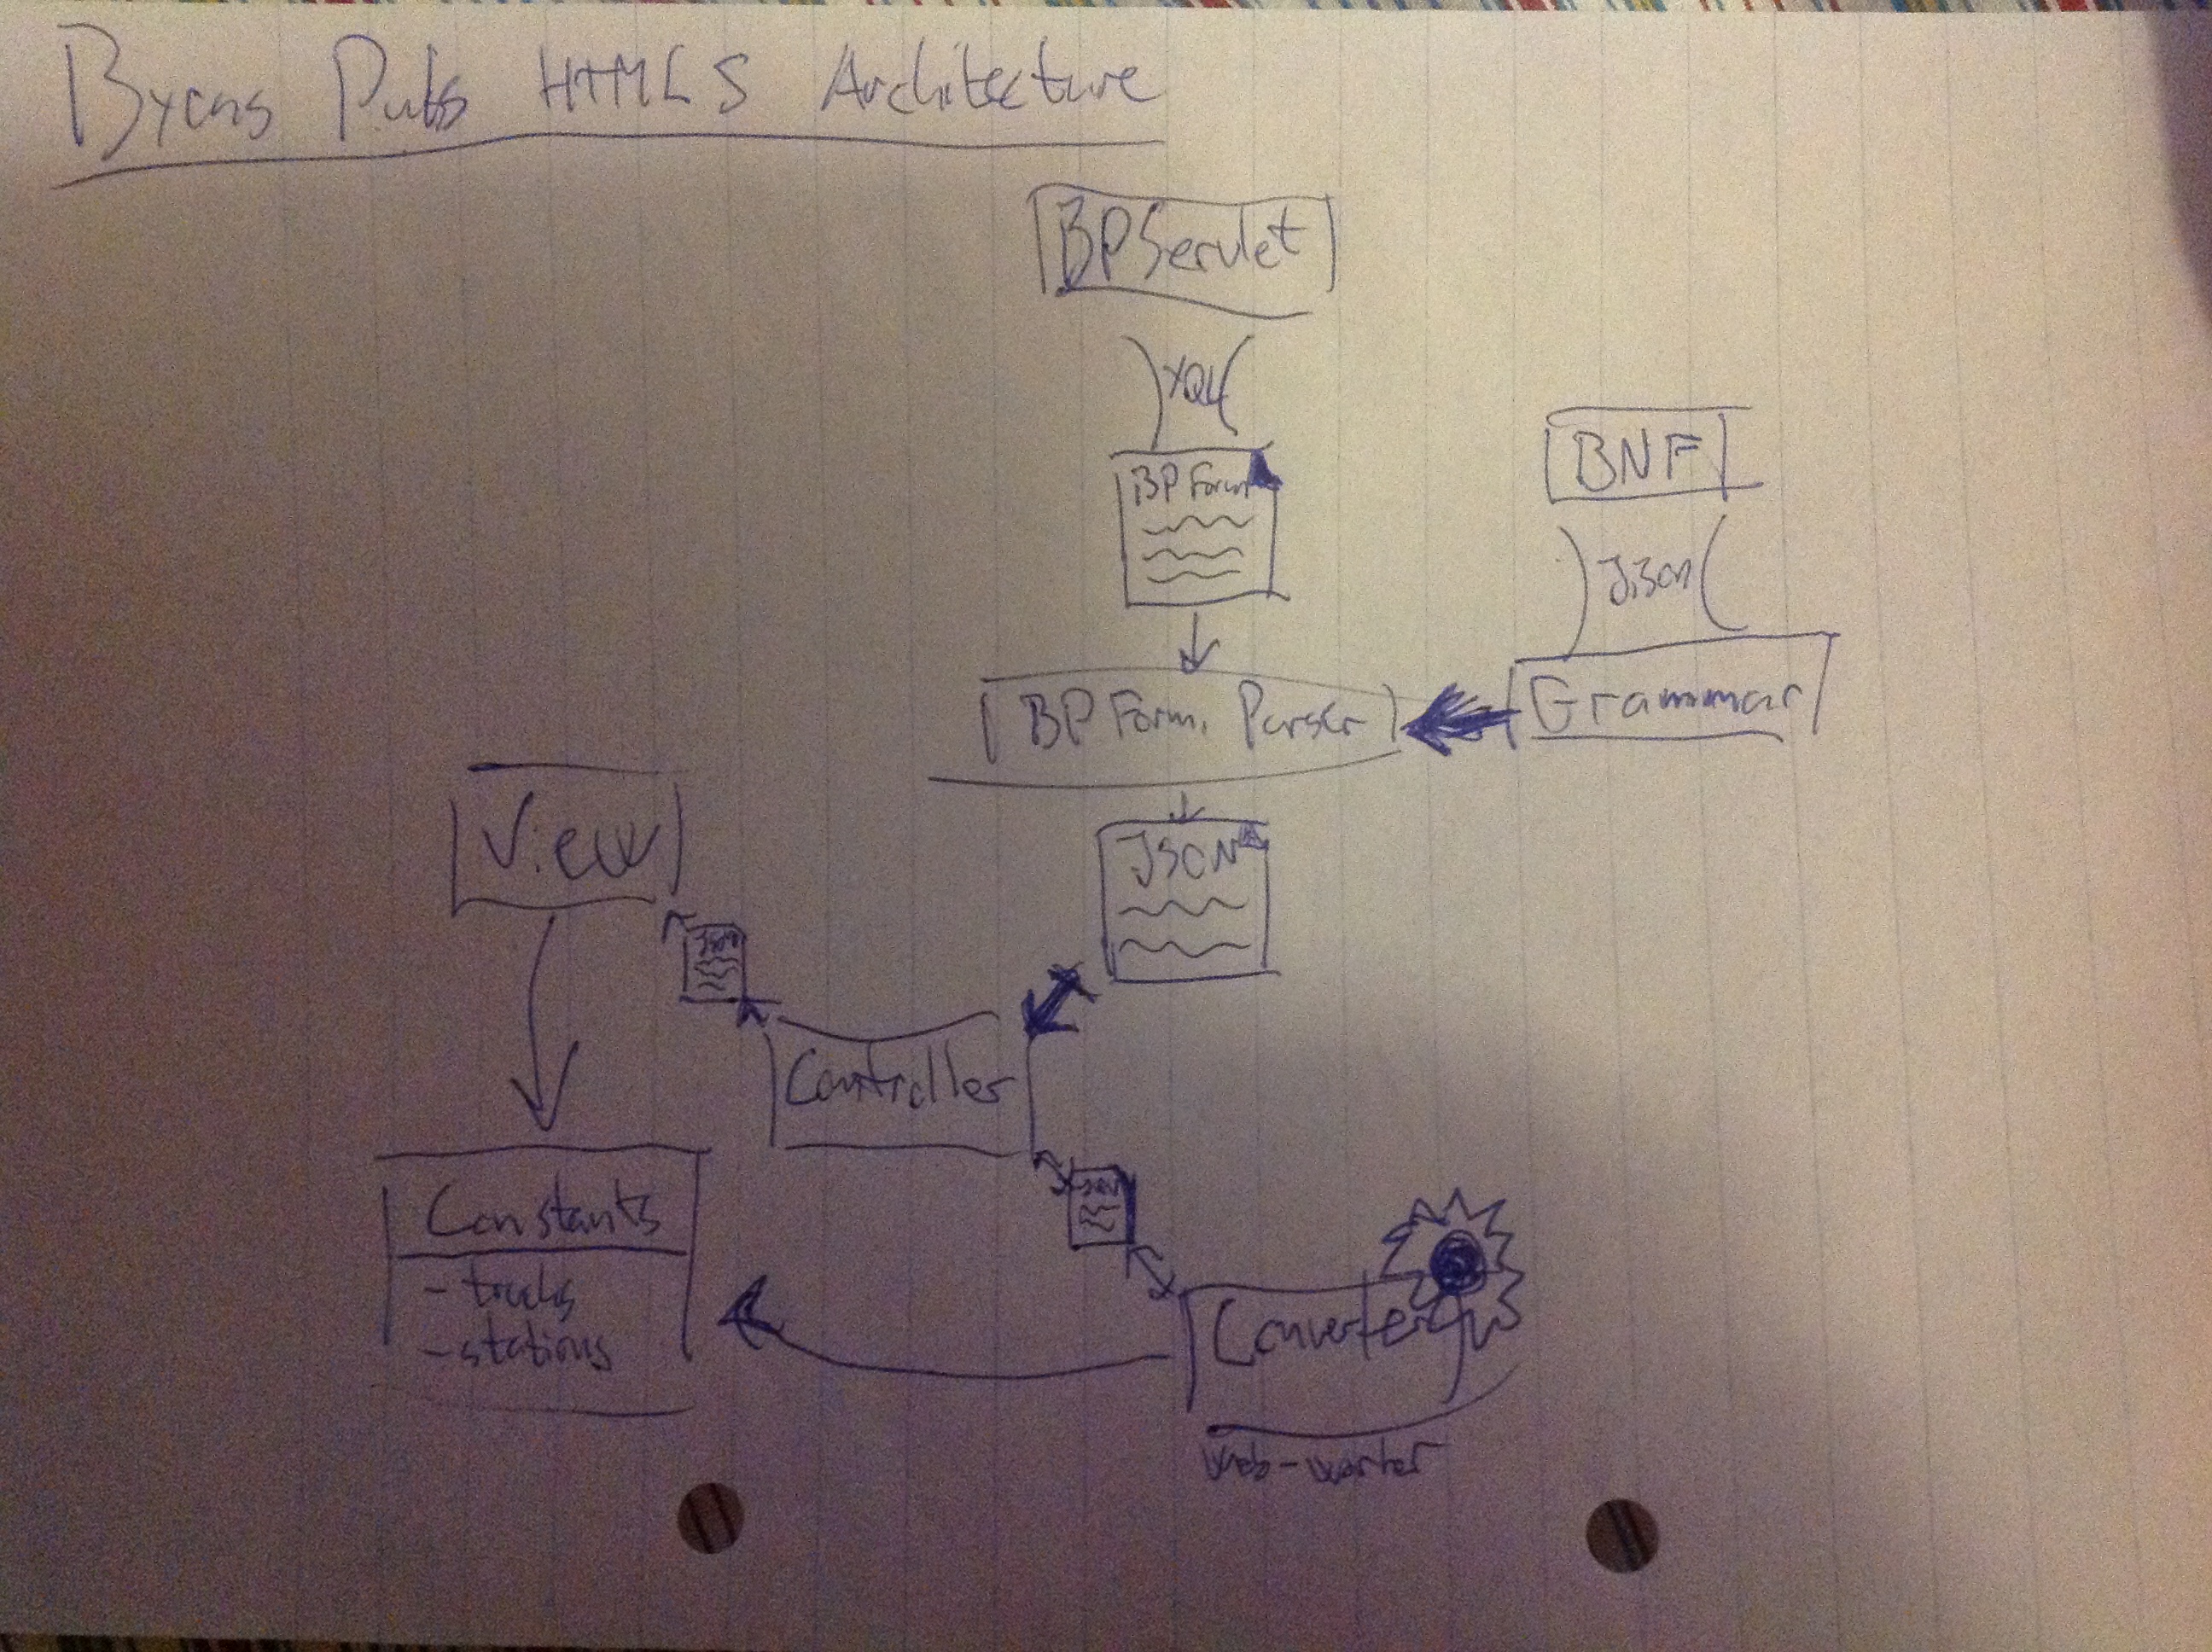 Architecture
BPServlet
BNF
BP Form
Jison
BP Form. Parser
Grammar
View
JSON
Json
Controller
Json
Constants
- tracks
- stations
Converter
web-worker